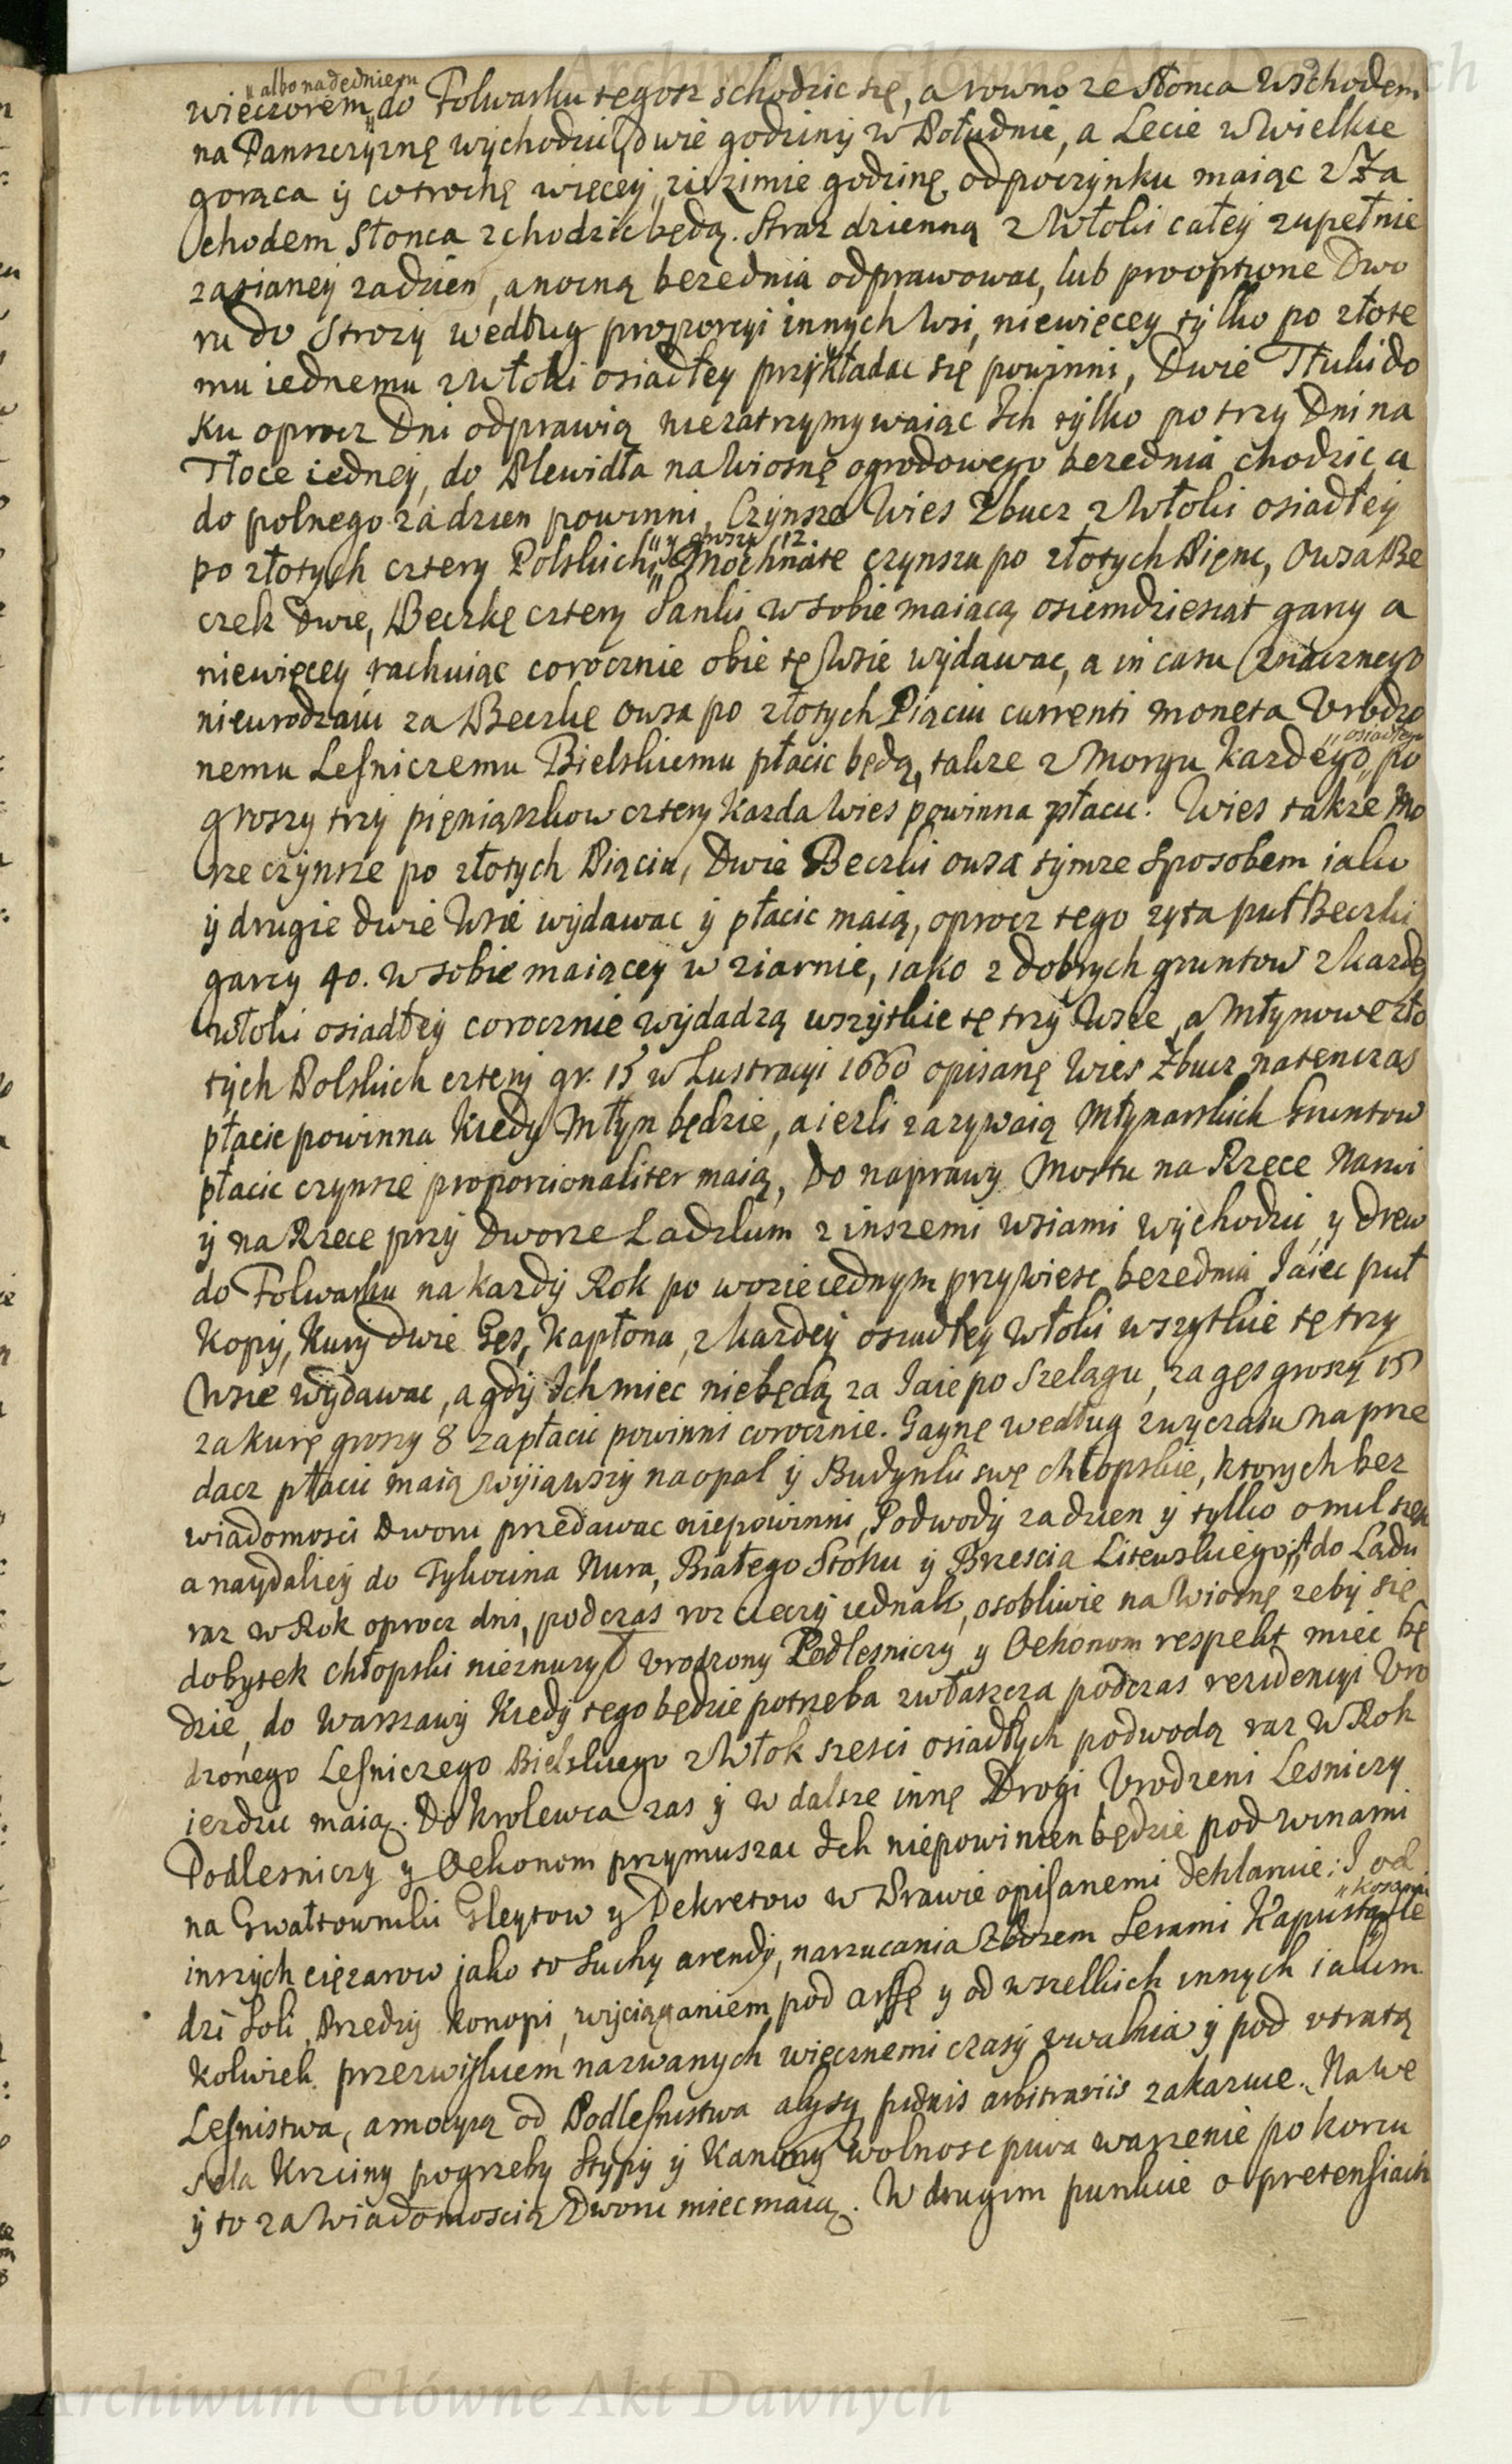 Archiwum Główne Akt Dawnych
„albo nadedniem
wieczorem „do Folwarku tegosz schodzic się, a rowno ze Słonca Wschodem
na Panszczyznę wychodzić, dwie godziny w Południe, a Lecie w Wielkie
gorąca y cotrochę więcey, zi zimie godzinę odpoczynku maiąc z Za
chodem Słonca zchodzic będą. Straz dzienną z Włoki całey zupełnie
zasianey zadzien, a nocną bezednia odprawowac, lub prooptione Dwo
ru do Strozy według proporcyi innych Wsi, niewięcey tylko po złote
mu iednemu z Włoki osiadłey przykładac się powinni, Dwie Tłuki do
ku oprocz Dni odprawią niezatrzymywaiąc Ich tylko po trzy Dni na
Tłoce iedney, do Plewidła na Wiosnę ogrodowego bezednia chodzic a
do polnego za dzien powinni, Czynszu Wies Zbucz z Włoki osiadłey
„y groszy 12.
po złotych cztery Polskich „Mochnate czynszu po złotych Pięnc, Owsa Be
czek dwie, Beczkę cztery Sanki w sobie maiącą osiemdziesiąt garcy a
niewięcey rachuiąc corocznie obie tę Wsie wydawac, a in casu znacznego
nieurodzaiu za Beczkę Owsa po złotych Piąciu currenti moneta Urodzo
„osiadłego
nemu Lesniczemu Bielskiemu płacic będą, takze z Morgu kazdego „po
groszy trzy pięniązkow cztery kazda Wies powinna płacic. Wies takze Mo
rze czynsze po złotych Piąciu, Dwie Beczki owsa tymze sposobem iako
y drugie dwie Wsie wydawac y płacic maią, oprocz tego zyta puł Beczki
garcy 40. w sobie maiącey w ziarnie, iako z dobrych gruntow z kazdey
włoki osiadłey corocznie wydadzą wszytkie tę trzy Wsie, a Młynowe zło
tych Polskich cztery gr. 15 w Lustracyi 1660 opisanę Wies Zbucz natenczas
płacic powinna kiedy Młyn będzie, a iezli zazywaią Młynarskich Gruntow
płacic czynsze proporcionaliter maią, Do naprawy Mostu na Rzece Narwi
y na Rzece przy Dworze Ladzkim z inszemi wsiami wychodzić, y drew
do Folwarku na kazdy Rok po wozie iednym przywiesc bezednia, Jaiec puł
kopy, kury dwie Gęs, kapłona, z kazdey osiadłey Włoki wszytkie tę trzy
Wsie wydawac, a gdy Ich miec niebędą za Jaie po Szelągu, za gęs groszy 15
za kurę groszy 8 zapłacic powinni corocznie. Gaynę według zwyczaiu na prze
dacz płacic maią wyiąwszy na opal y Budynki swę chłopskie, ktorych bez
wiadomosci Dworu przedawac niepowinni, Podwody za dzien y tylko o mil szesc
a naydaliey do Tykocina Nura, Białego Stoku y Brzescia Litewskiego, „A do Lądu
raz w Rok oprocz dni, podczas rozcieczy iednak, osobliwie na Wiosnę zeby się
dobytek chłopski nieznuzył Urodzony Podlesniczy y Oekonom respekt miec bę
dzie, do Warszawy kiedy tego będzie potrzeba zwłaszcza podczas rezidencyi Uro
dzonego Lesniczego Bielskiego z Włok szesci osiadłych podwodą raz w Rok
iezdzic maią. Do Krolewca zas y w dalsze innę Drogi Urodzeni Lesniczy
Podlesniczy y Oekonom przymuszac Ich niepowinien będzie pod winami
na Gwałtownikii Gleytow y Dekretow w Prawie opisanemi deklaruie; I od
„koszami
inszych cięzarow jako to Suchy arendy, narzucania Zbozem Serami Kapustą „Sle
dzi Soli, Przędzy konopi, wyciąganiem pod arffę y od wszelkich innych iakim
kolwiek przezwiskiem nazwanych wiecznemi czasy uwalnia y pod utratą
Lesnistwa, a mocyą od Podlesnistwa alysy pœnis arbitrariis zakazuie. Na We
sela Krzciny pogrzeby Stypy y Kanuny Wolnosc piwa warzenie po korcu
y to za Wiadomoscią Dworu miec maią. W drugim punkcie o pretensiach
Archiwum Główne Akt Dawnych